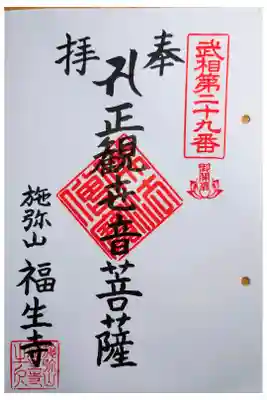 武相第二十九番
奉拝
正観世音菩薩
施弥山
福生寺